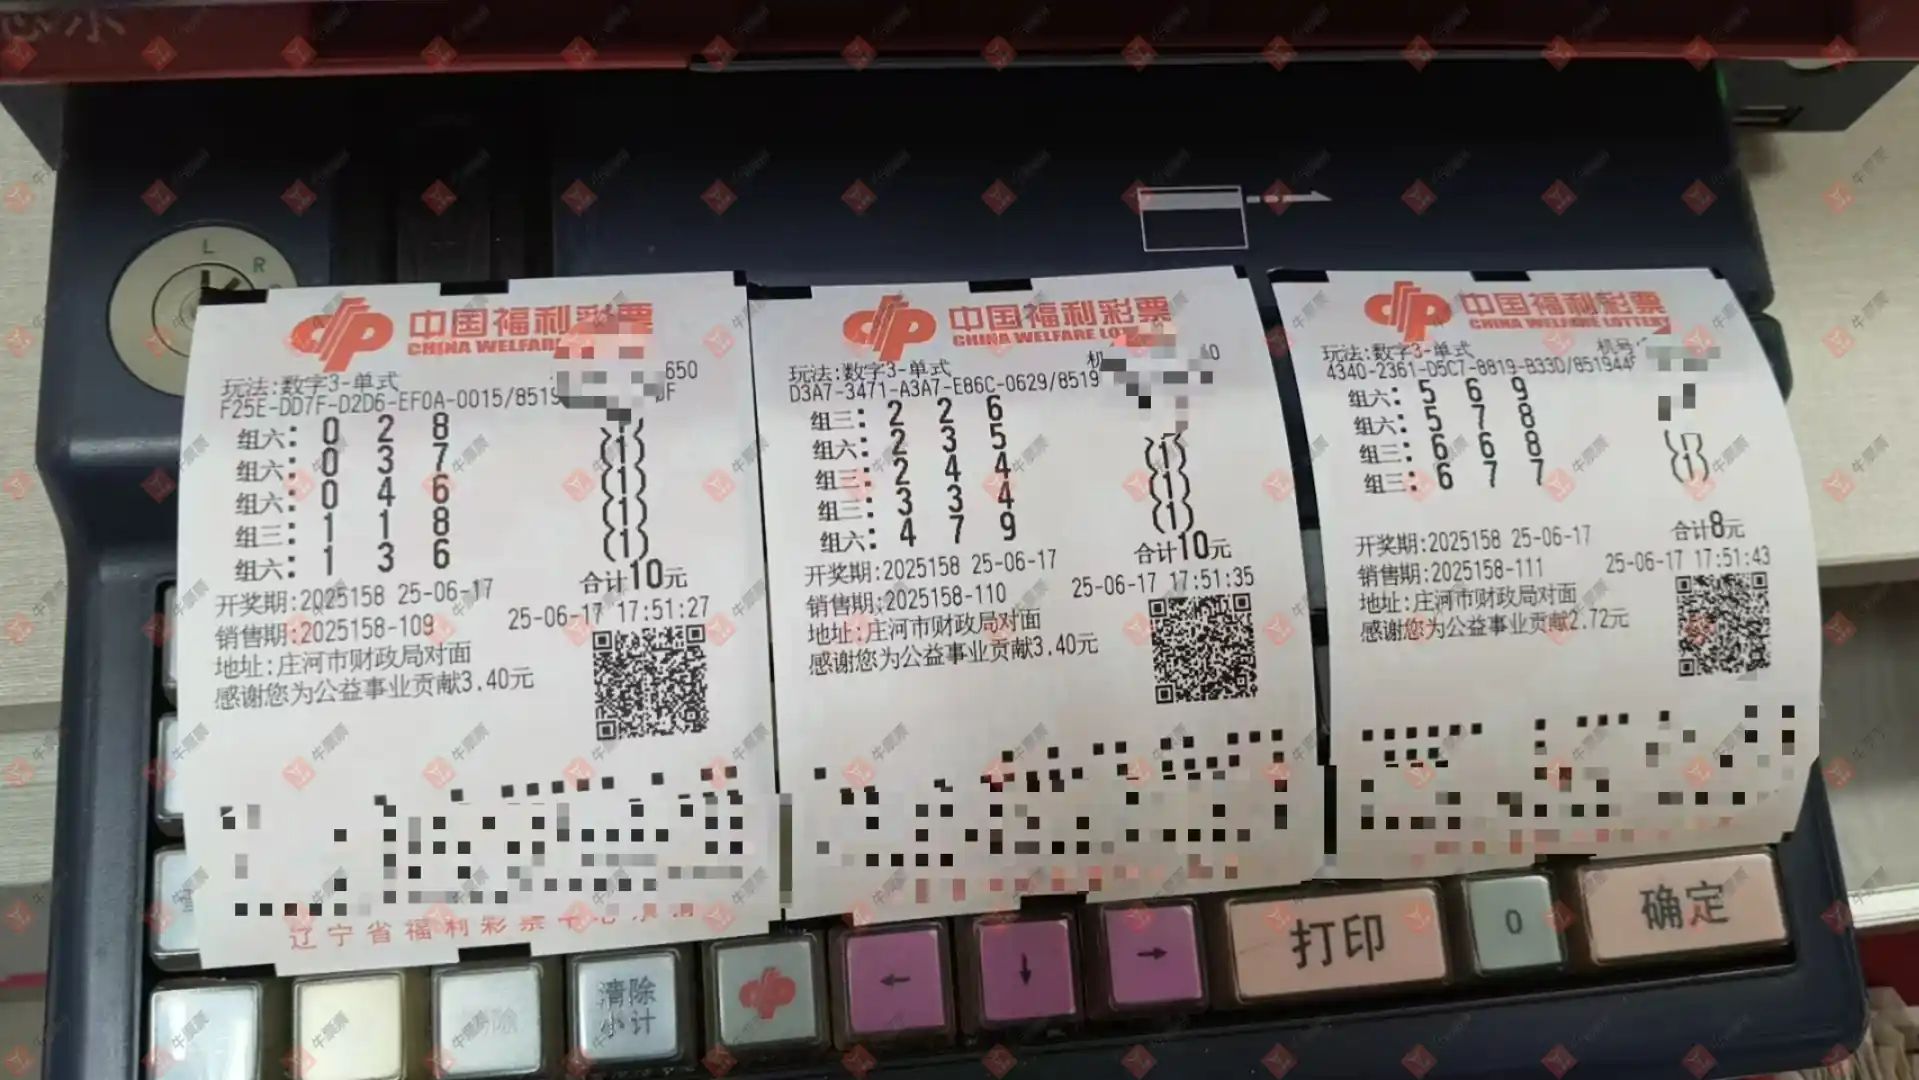 中国福利彩票
CHINA WELFARE
玩法:数字3-单式
650
F25E-DD7F-D2D6-EF0A-0015/8519
组六: 0 2 8 (1)
组六: 0 3 7 (1)
组六: 0 4 6 (1)
组三: 1 1 8 (1)
组六: 1 3 6 (1)
合计10元
开奖期:2025158 25-06-17
销售期:2025158-109 25-06-17 17:51:27
地址:庄河市财政局对面
感谢您为公益事业贡献3.40元
辽宁省福利彩票中心
中国福利彩票
CHINA WELFARE LOT
玩法:数字3-单式 机
D3A7-3471-A3A7-E86C-0629/8519
组三: 2 2 6
组六: 2 3 5 (1)
组三: 2 4 4 (1)
组三: 3 3 4 (1)
组六: 4 7 9
合计10元
开奖期:2025158 25-06-17
销售期:2025158-110 25-06-17 17:51:35
地址:庄河市财政局对面
感谢您为公益事业贡献3.40元
中国福利彩票
CHINA WELFARE LOTTERY
玩法:数字3-单式 机号:
4340-2361-D5C7-8819-B33D/851944
组六: 5 6 9
组六: 5 7 8
组三: 6 6 8 (1)
组三: 6 7 7 (1)
合计8元
开奖期:2025158 25-06-17
销售期:2025158-111 25-06-17 17:51:43
地址:庄河市财政局对面
感谢您为公益事业贡献2.72元
L
R
清除
小计
←
↓
→
打印
0
确定
牛票票